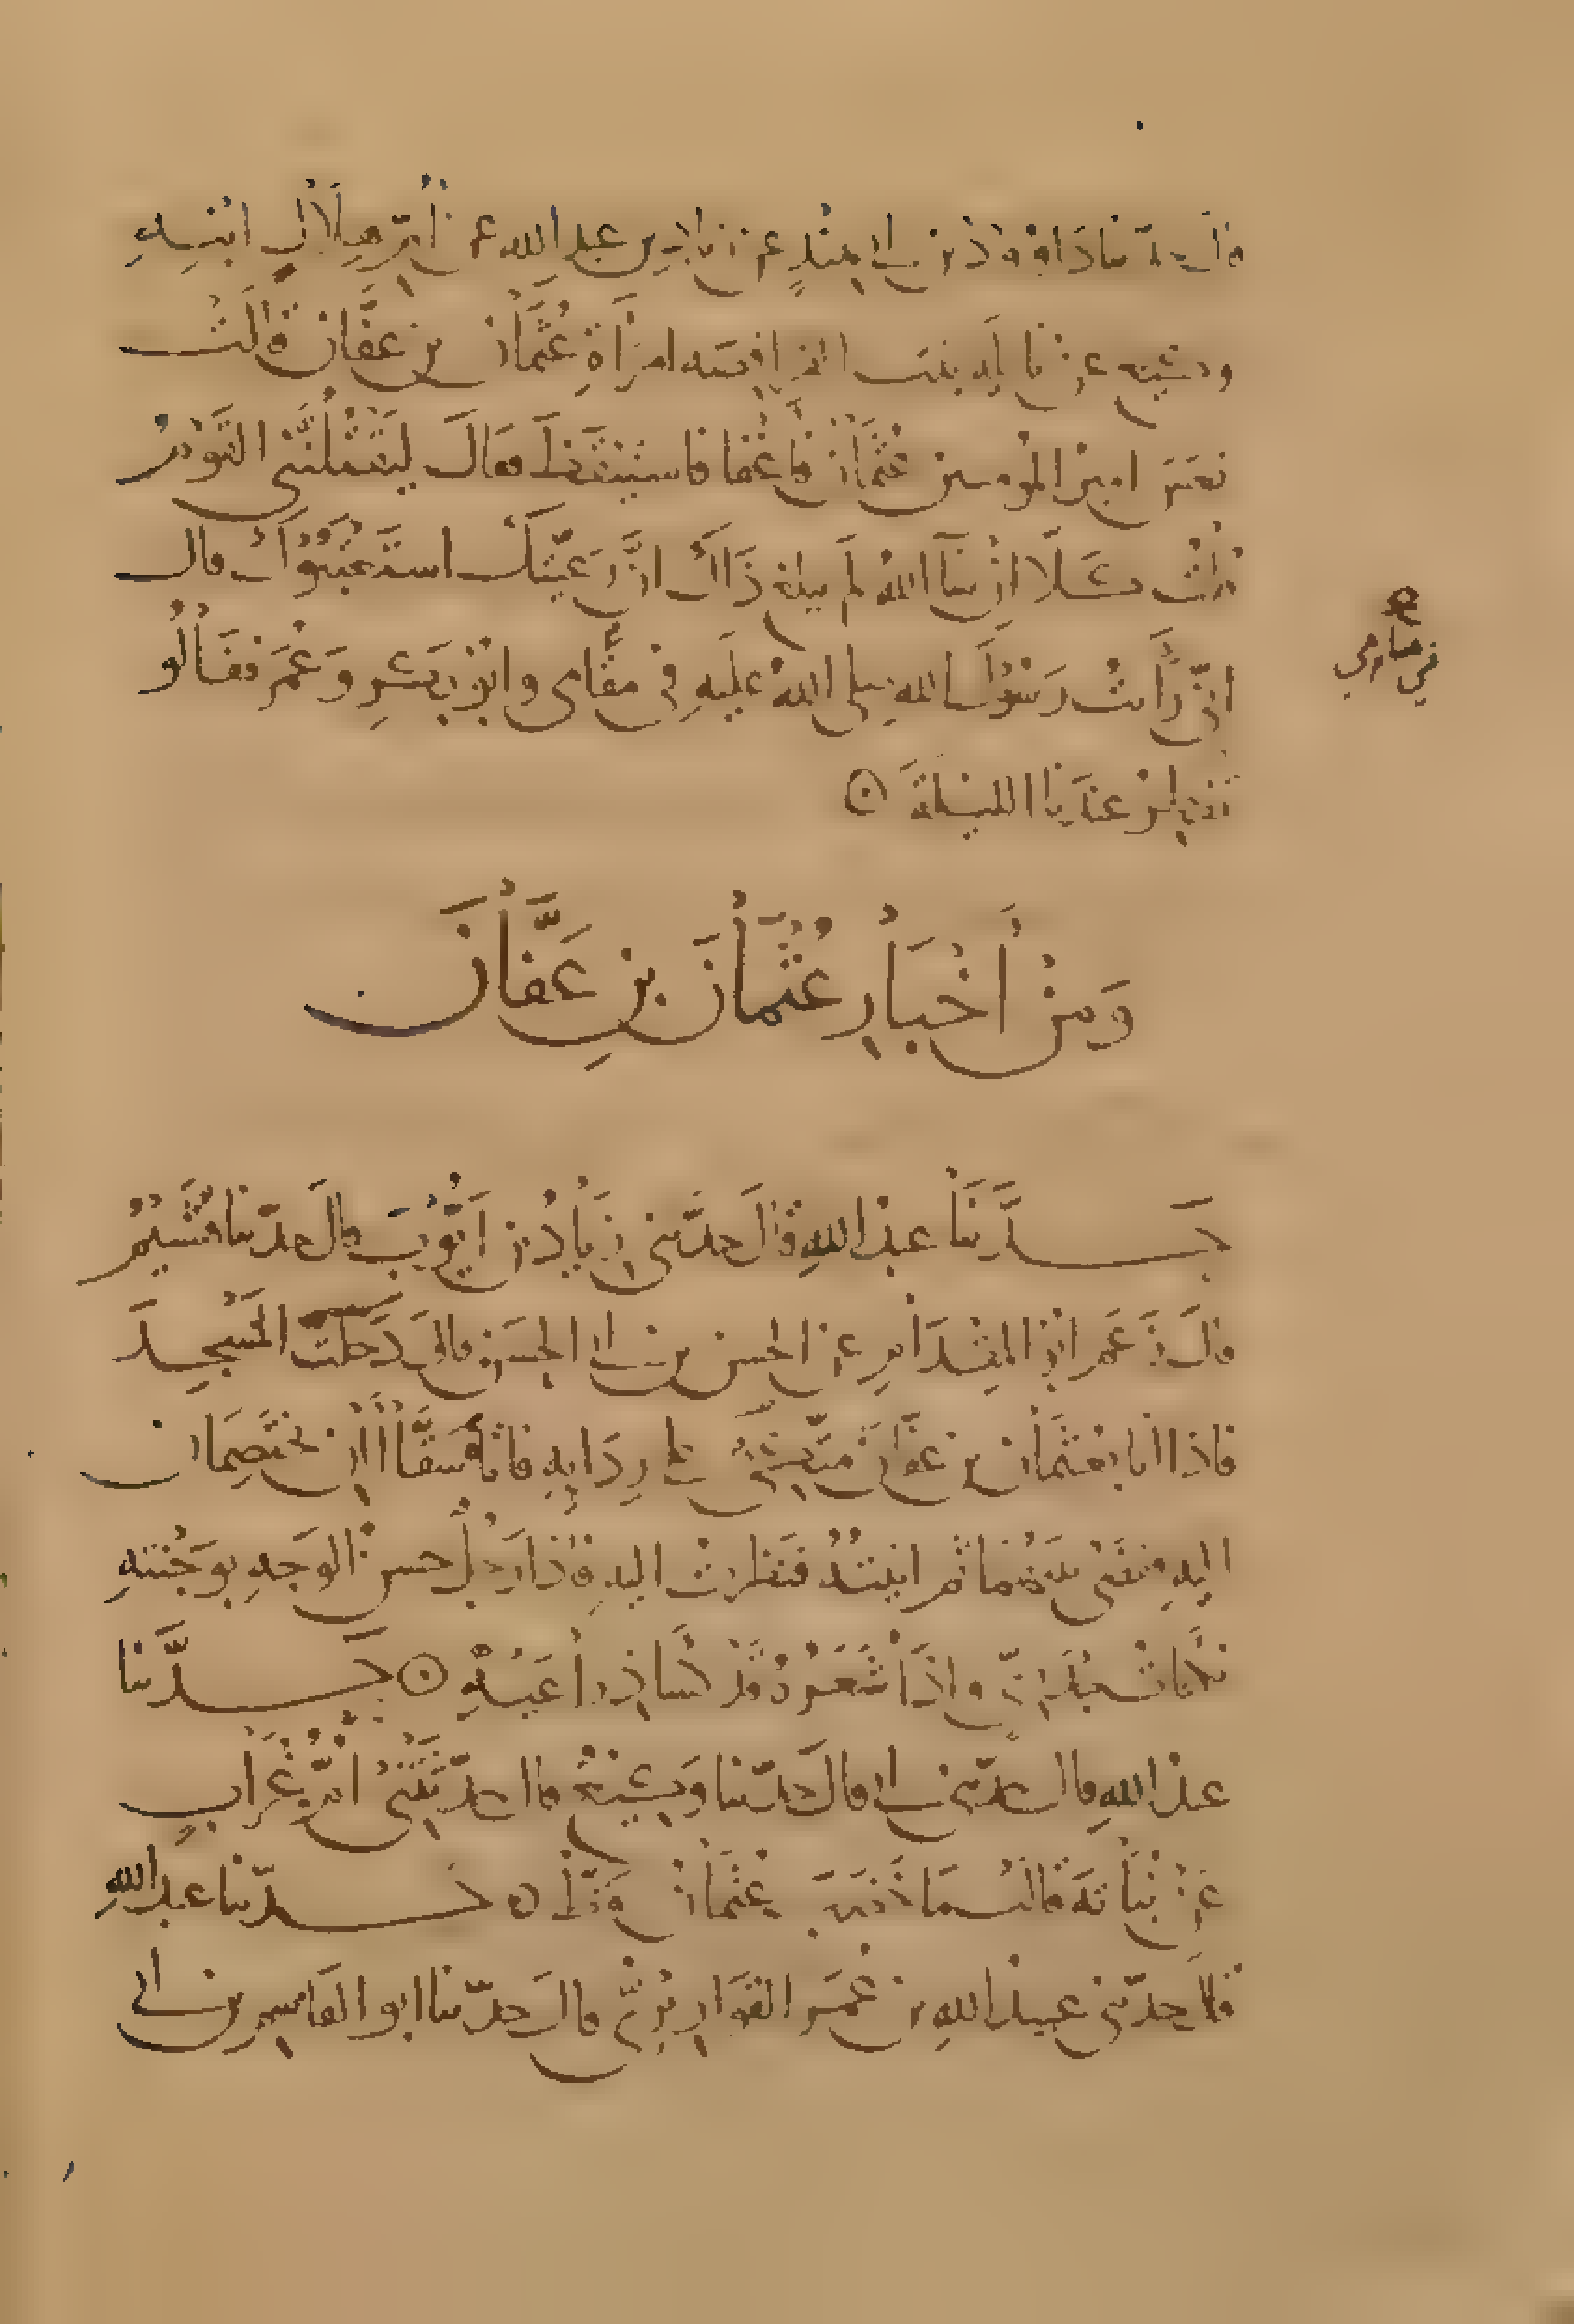 قال حدثنا داود بن ابي هند عن زياد بن عبد الله عن أُمِّ هِلَالٍ ابْنَةِ
وكيع عن نايله بنت الفرافصه امْرَأَةِ عُثْمَانَ بن عفَّان قَالَت
نعَسَ امير المومنين عُثْمَانُ فَأَغْفَا فاستَيْقَظَ فقالَ لَيَقْتُلَنَّنِي القَوْمُ
قُلْتُ كَلَّا ان شَآ اللهُ لَم يبلغ ذَاكَ انَّ رَعِيَّتَكَ استَعْتَبُوْكَ قال
انِّي رَأَيْتُ رَسُوْلَ الله صلى اللهُ عليهِ فِي مَنَامِي وابُو بَكرٍ وَعُمَرُ فقَالُوا
تُفْطِرُ عندَنا الليْلَةَ
في منامي
وَمِنْ أَخْبَارِ عُثْمَانَ بنِ عَفَّانَ
حَدَّثَنَا عبدُ اللهِ قَالَ حدَّثني زِيَادُ بن ايُّوْبَ قالَ حدّثنا هُشَيْمٌ
قالَ زَعَمَ ابو المِقْدَامِ عن الحسن بن ابي الحسَنِ قالَ دَخَلتُ المَسْجِدَ
فاذا انا بعُثمَان بن عفَّانَ مُتَّكِئٌ على رِدَايهِ فاتَاهُ سَقَّاأانِ يَختَصِمَانِ
اليهِ فقَضَى بَيْنَهُمَا ثم اتيْتُهُ فنَظَرتُ اليهِ فاذا رَجُلٌ حسن الوَجهِ بوَجْنَتِهِ
نكتات جُدَرِيٍّ واذَا شَعَرُهُ قَدْ كَسَا ذِراعَيْهِ حَدَّثنا
عبدُ اللهِ قال حدّثني ابي قالَ حدّثنا وَكِيْعٌ قال حدّثَتْنِي امُّ غُرَابٍ
عن بُنَانَةَ قالت مَا خَضَبَ عُثمَانُ قَطُّ حدّثنا عبدُ اللهِ
قالَ حدّثني عبيدُ اللهِ بن عُمَرَ القَوَارِيْرِيُّ قالَ حدّثنا ابو القَاسِم بن ابي